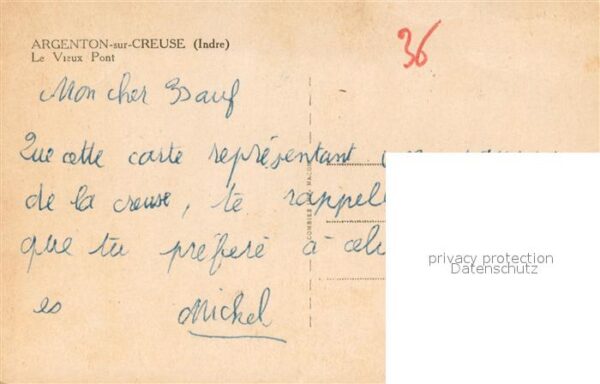 ARGENTON-sur-CREUSE (Indre)
Le Vieux Pont
36
Mon cher
Que cette carte représentant
de la creuse, te rappel
que tu préféré à
es Michel
COMBIER
privacy protection
Datenschutz